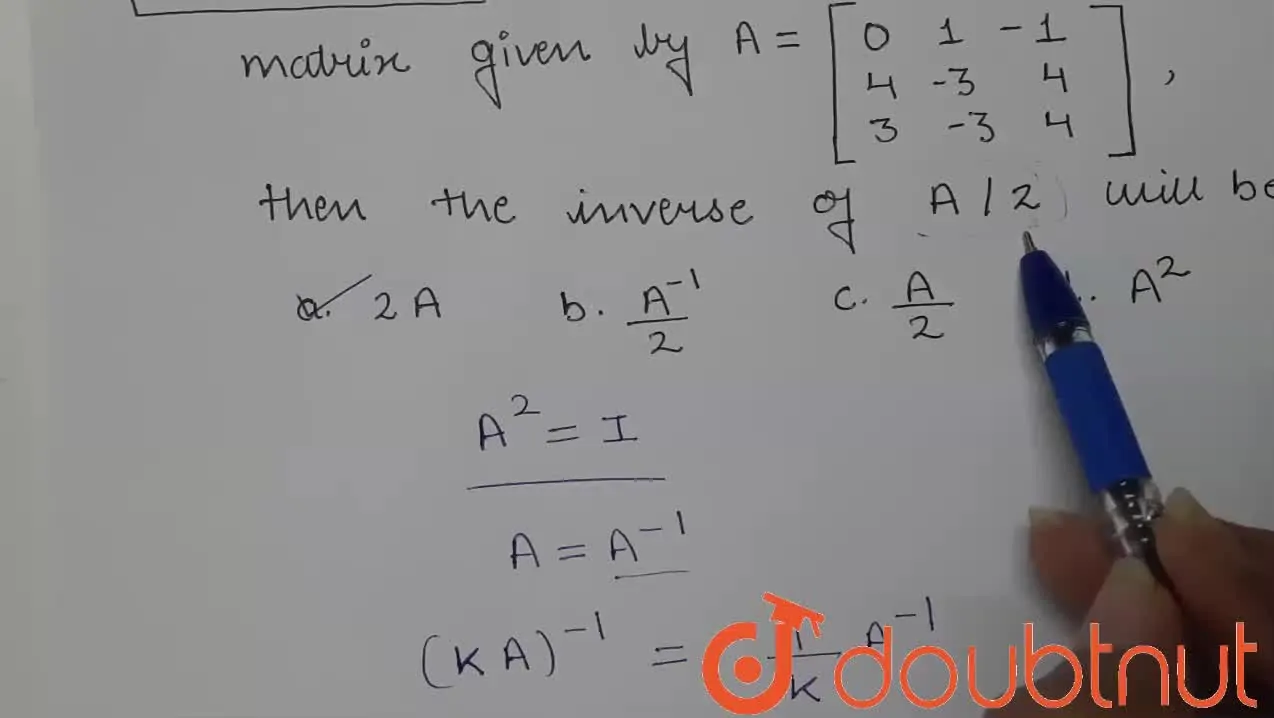 matrix given by A = [ 0 1 -1
4 -3 4
3 -3 4 ] ,
then the inverse of A / 2 will be
a. 2A b. A⁻¹/2 c. A/2 . A²
A² = I
A = A⁻¹
(KA)⁻¹ = 1/K A⁻¹
doubtnut